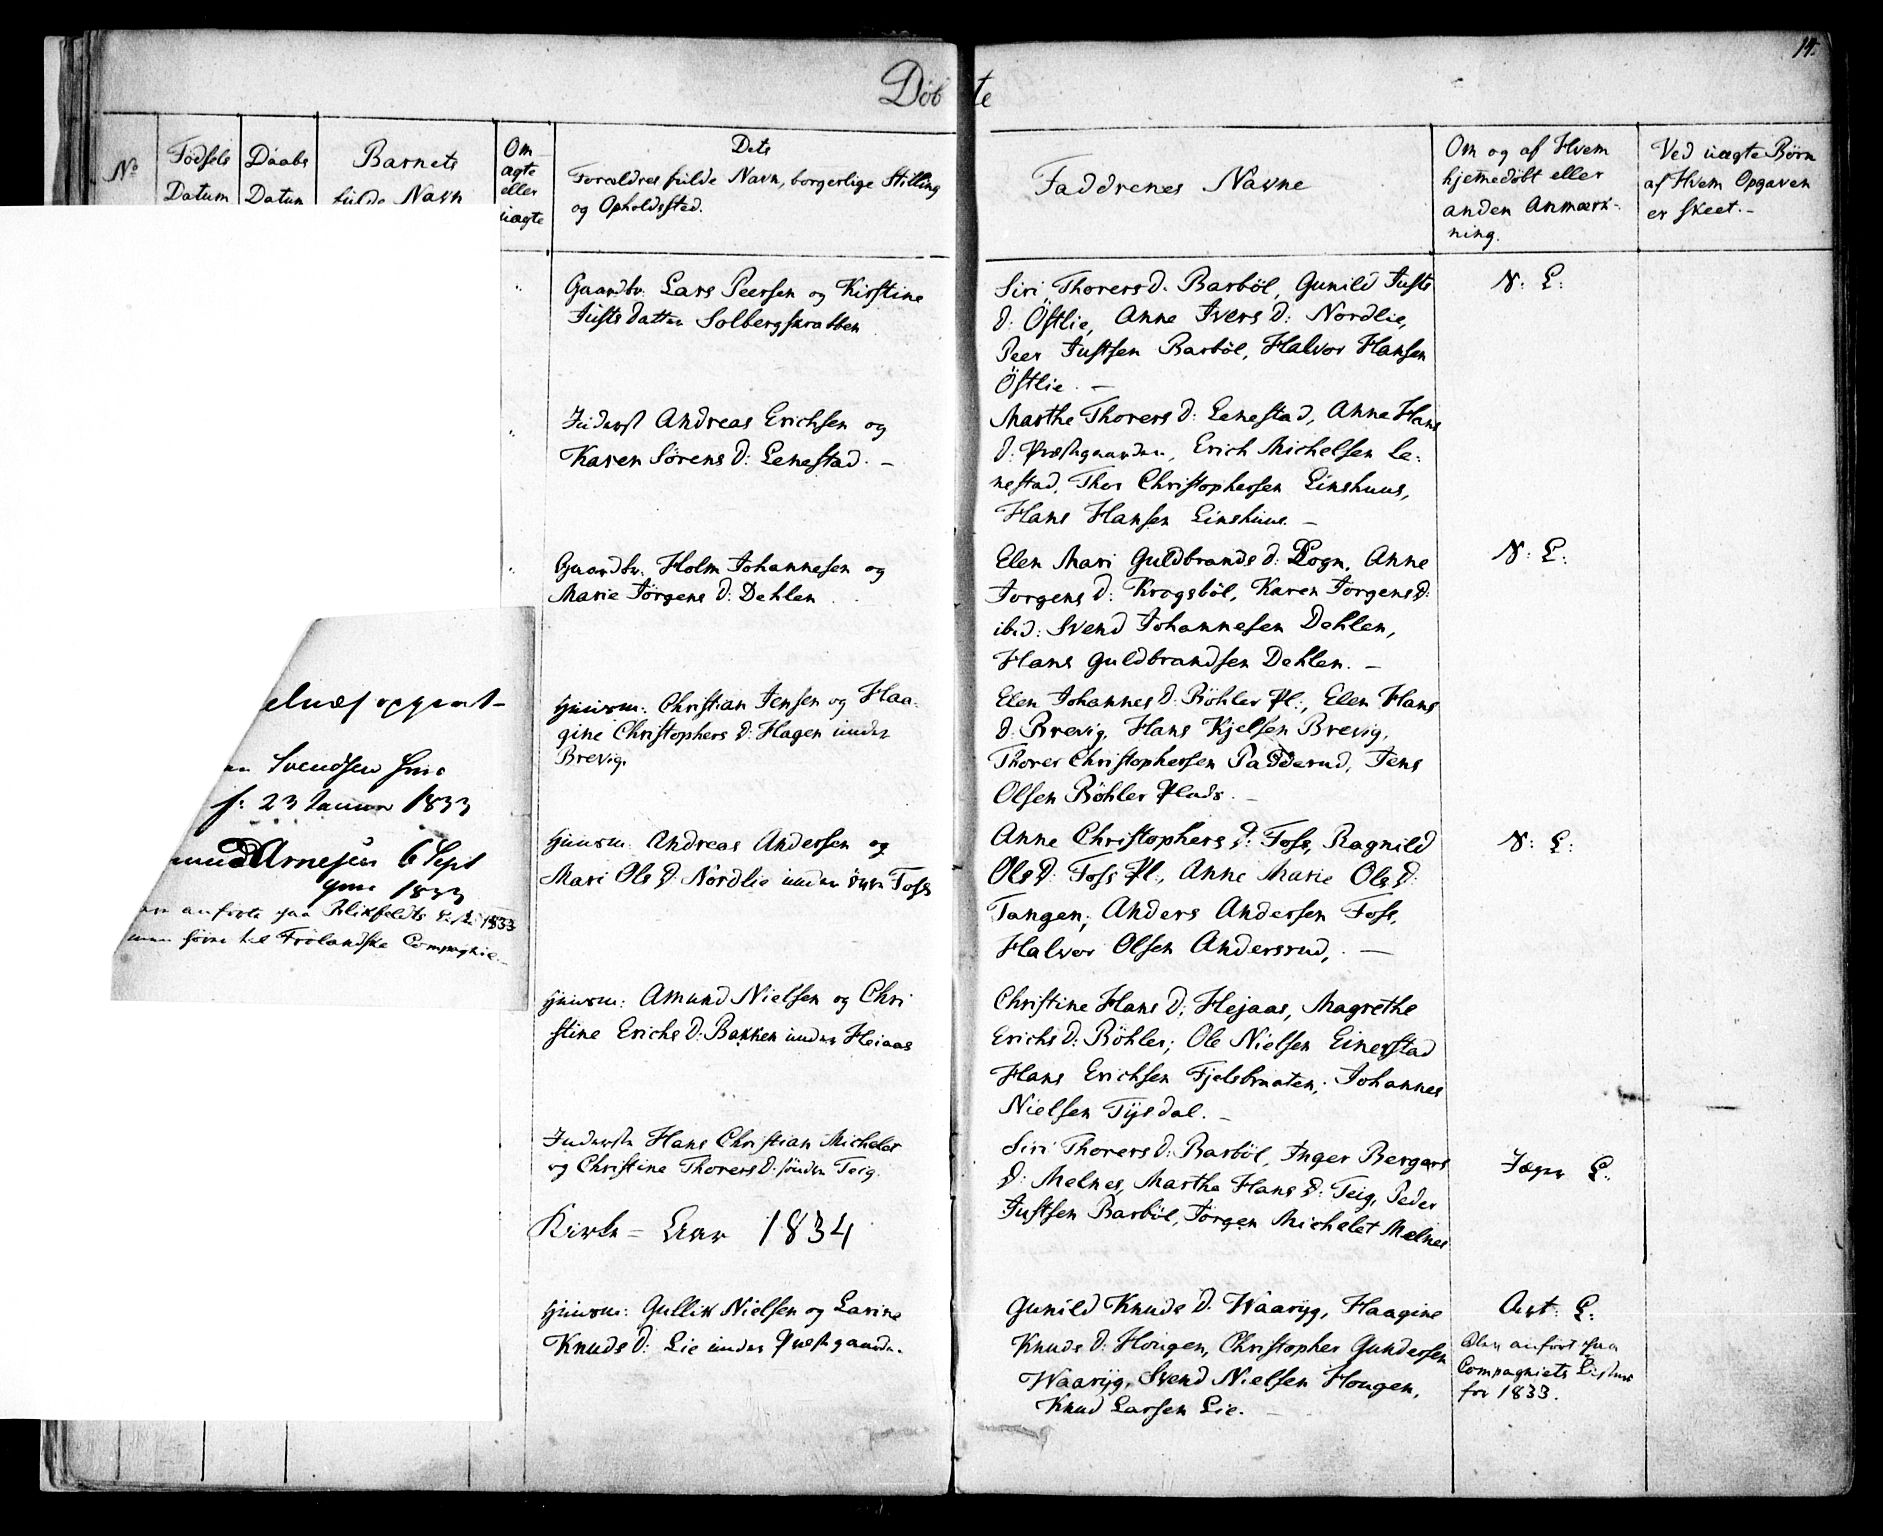 14.
Döbte
No
Födsels Datum
Daabs Datum
Barnets fulde Navn
Om ægte eller uægte
Dets
Forældres fulde Navn, borgerlige Stilling
og Opholdssted.
Faddrenes Navne
Om og af Hvem
hjemedöbt eller
anden Anmærk-
ning.
Ved uægte Börn
af Hvem Opgaven
er skeet.-
Gaardbr. Lars Peersen og Kirstine
Justsdatter Solbergskratten
Siri Thorersd. Barböl, Gunild Justs
d: Östlie, Anne Ivers d: Nordlie,
Peer Justsen Barböl, Halvor Hansen
Östlie. -
N: L:
Inderst Andreas Erichsen og
Karen Sörens d: Lenestad. -
Marthe Thorers d: Lenestad, Anne Hans
d: Præstegaarden, Erich Michelsen Le:
nestad, Thor Christophersen Linshuus,
Hans Hansen Linshuus. -
Gaardbr. Holm Johannesen og
Marie Jörgens d: Dehlen
Elen Mari Guldbrands d: Sogn, Anne
Jorgens d: Krogsböl, Karen Jorgens d:
ibid: Svend Johannesen Dehlen,
Hans Guldbrandsen Dehlen. -
N: L:
Huusm: Christian Jensen og Haa:
gine Christophers d: Hagen under
Brevig.
Elen Johannes d: Böhler Pl:, Elen Hans
d: Brevig, Hans Kjelsen Brevig,
Thorer Christophersen Padderud, Jens
Olsen Böhler Plads. -
Svendsen
f: 23 Januar 1833
Arnesen 6 Sept
1833
1833
til Frölandske Compagnie.-
Huusm: Andreas Andersen og
Mari Ols d: Nordlie under övre Foss
Anne Christophers d: Foss, Ragnild
Ols d: Foss Pl:, Anne Marie Ols d:
Tangen, Anders Andersen Foss,
Halvor Olsen Andersrud, -
N: L:
Huusm: Amund Nielsen og Chri
stine Erichs d: Bakken under Heiaas
Christine Hans d: Hejaas, Magrethe
Erichs d: Böhler; Ole Nielsen Einerstad
Hans Erichsen Fjelsbraaten, Johannes
Nielsen Tysdal. -
Inderste Hans Christian Michelet
og Christine Thorers d: söndre Teig.
Siri Thorers d: Barböl, Inger Bergers
d: Melnes, Marthe Hans d: Teig, Peder
Justsen Barböl, Jörgen Michelet Melnes
Jæger L:
Kirke = Aar 1834
Huusm: Gullik Nielsen og Larine
Knuds d: Lie under Præstegaarden.
Gunild Knuds d. Waaryg, Haagine
Knuds d: Hougen, Christopher Gundersen
Waaryg, Svend Nielsen Hougen,
Knud Larsen Lie. -
Art: L:
Blev anfört paa
Compagniets Lister
for 1833.